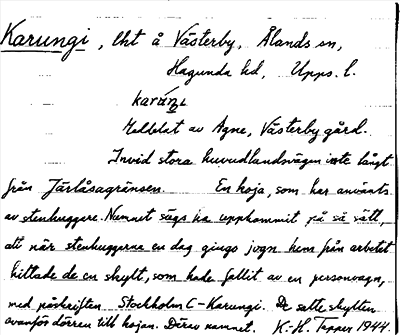 Karungi, lht å Västerby, Ålands sn,
Hagunda hd, Upps. l.
karúŋi
Meddelat av Agne, Västerby gård.
Invid stora huvudlandsvägen inte långt
från Järlåsagränsen. En koja, som har använts
av stenhuggare. Namnet sägs ha uppkommit på så sätt,
att när stenhuggarna en dag gingo jogn hem från arbetet
hittade de en skylt, som hade fallit av en personvagn,
med påskriften Stockholm C-Karungi. De satte skylten
ovanför dörren till kojan. Därav namnet. K.-H. Tapper 1944.